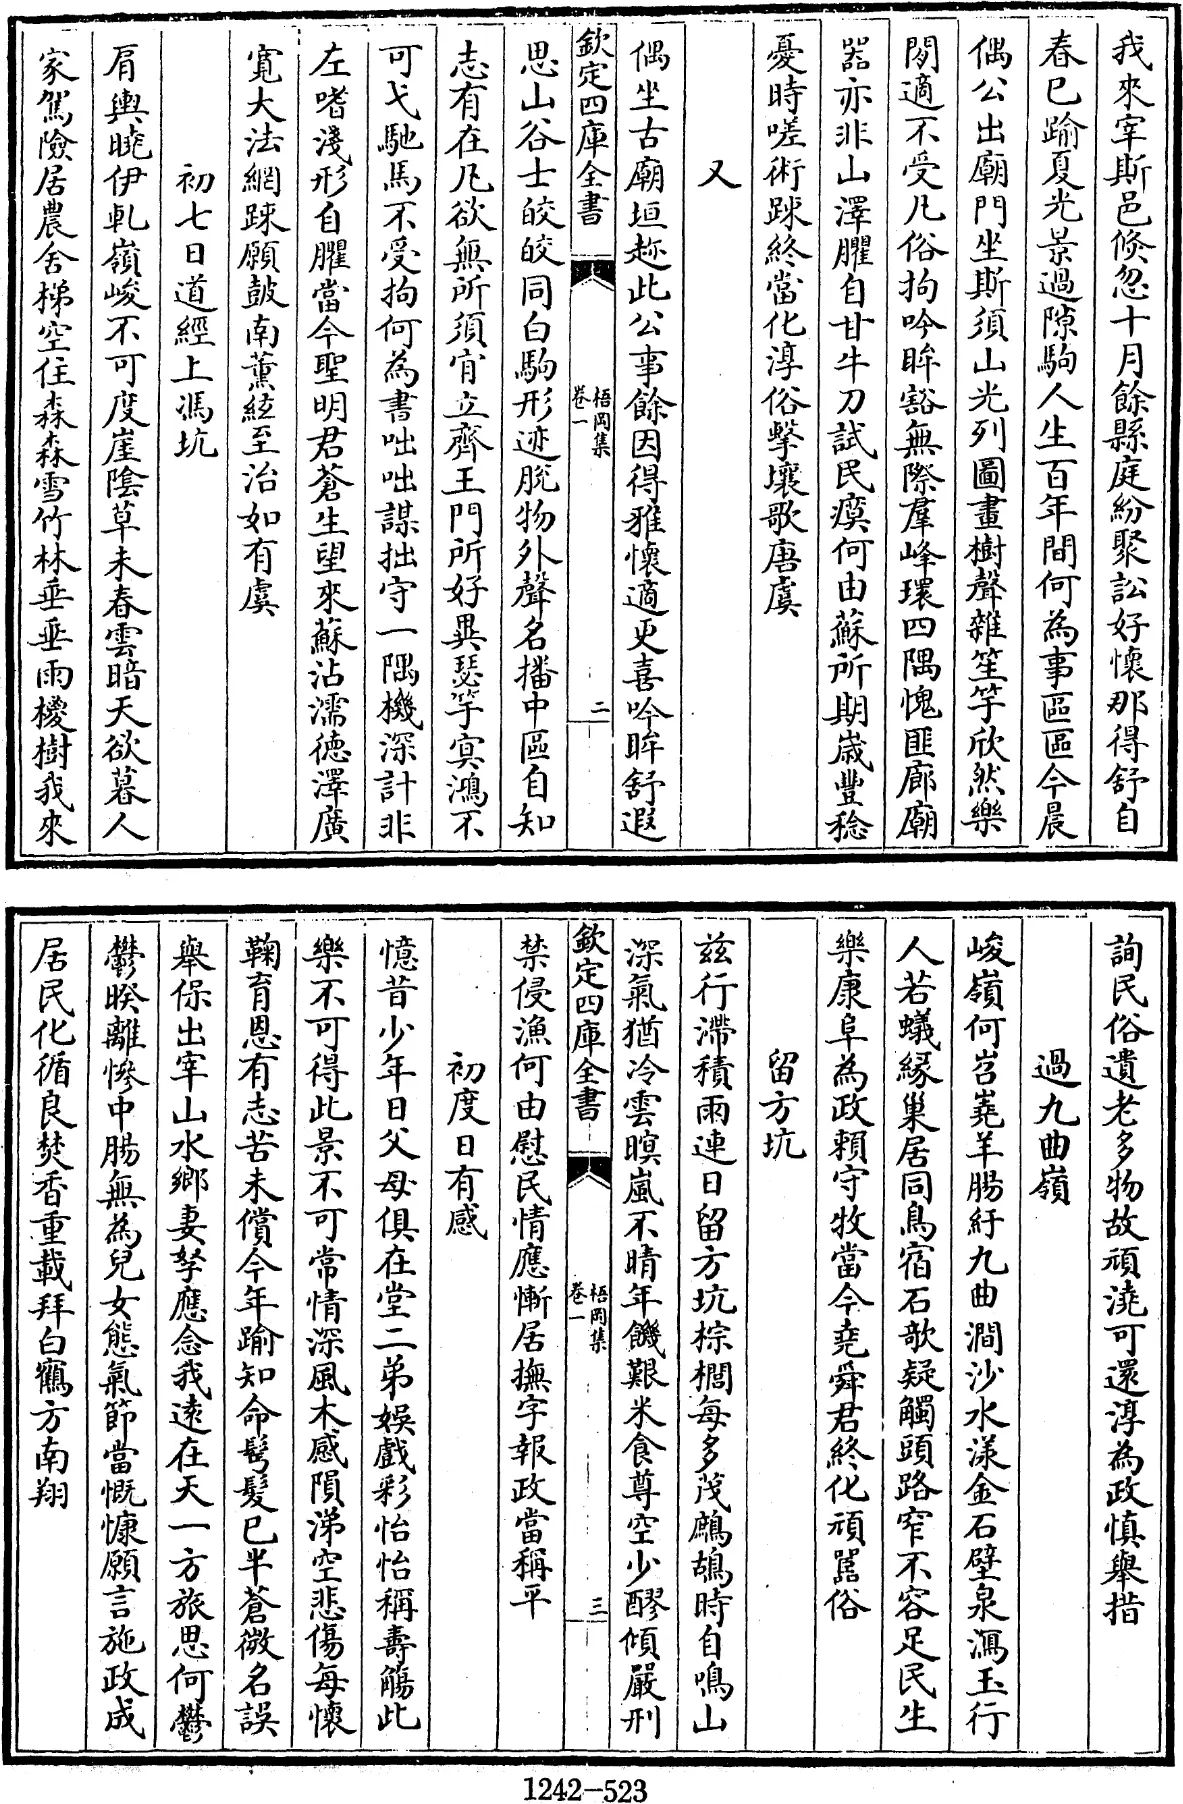 我來宰斯邑倏忽十月餘縣庭紛聚訟好懷那得舒自
春已踰夏光景過隙駒人生百年間何為事區區今晨
偶公出廟門坐斯須山光列圖畫樹聲雜笙竽欣然樂
閒適不受凡俗拘吟眸豁無際羣峰環四隅愧匪廊廟
器亦非山澤臞自甘牛刀試民瘼何由蘇所期歲豐稔
憂時嗟術踈終當化淳俗擊壤歌唐虞
又
偶坐古廟垣趂此公事餘因得雅懷適更喜吟眸舒遐
欽定四庫全書
梧岡集
卷一
二
思山谷士皎皎同白駒形迹脫物外聲名播中區自知
志有在凡欲無所須肎立齊王門所好異瑟竽㝠鴻不
可弋馳馬不受拘何為書咄咄謀拙守一隅機深計非
左嗜淺形自臞當今聖明君蒼生望來蘇沾濡德澤廣
寛大法網踈願鼓南薰絃至治如有虞
初七日道經上馮坑
肩輿曉伊軋嶺峻不可度崖陰草未春雲暗天欲暮人
家駕險居農舍梯空住森森雪竹林垂垂雨椶樹我來
詢民俗遺老多物故頑澆可還淳為政慎舉措
過九曲嶺
峻嶺何岧嶤羊腸紆九曲澗沙水漾金石壁泉瀉玉行
人若蟻緣巢居同鳥宿石欹疑觸頭路窄不容足民生
樂康阜為政賴守牧當今堯舜君終化頑嚚俗
留方坑
茲行滯積雨連日留方坑棕櫚每多茂鷓鴣時自鳴山
深氣猶冷雲暝嵐不晴年饑艱米食尊空少醪傾嚴刑
欽定四庫全書
梧岡集
卷一
三
禁侵漁何由慰民情應慚居撫字報政當稱平
初度日有感
憶昔少年日父母俱在堂二弟娛戲彩怡怡稱壽觴此
樂不可得此景不可常情深風木感隕涕空悲傷每懷
鞠育恩有志苦未償今年踰知命髩髮已半蒼微名誤
舉保出宰山水鄉妻孥應念我逺在天一方旅思何鬱
鬱暌離慘中腸無為兒女態氣節當慨慷願言施政成
居民化循良焚香重載拜白鶴方南翔
1242-523